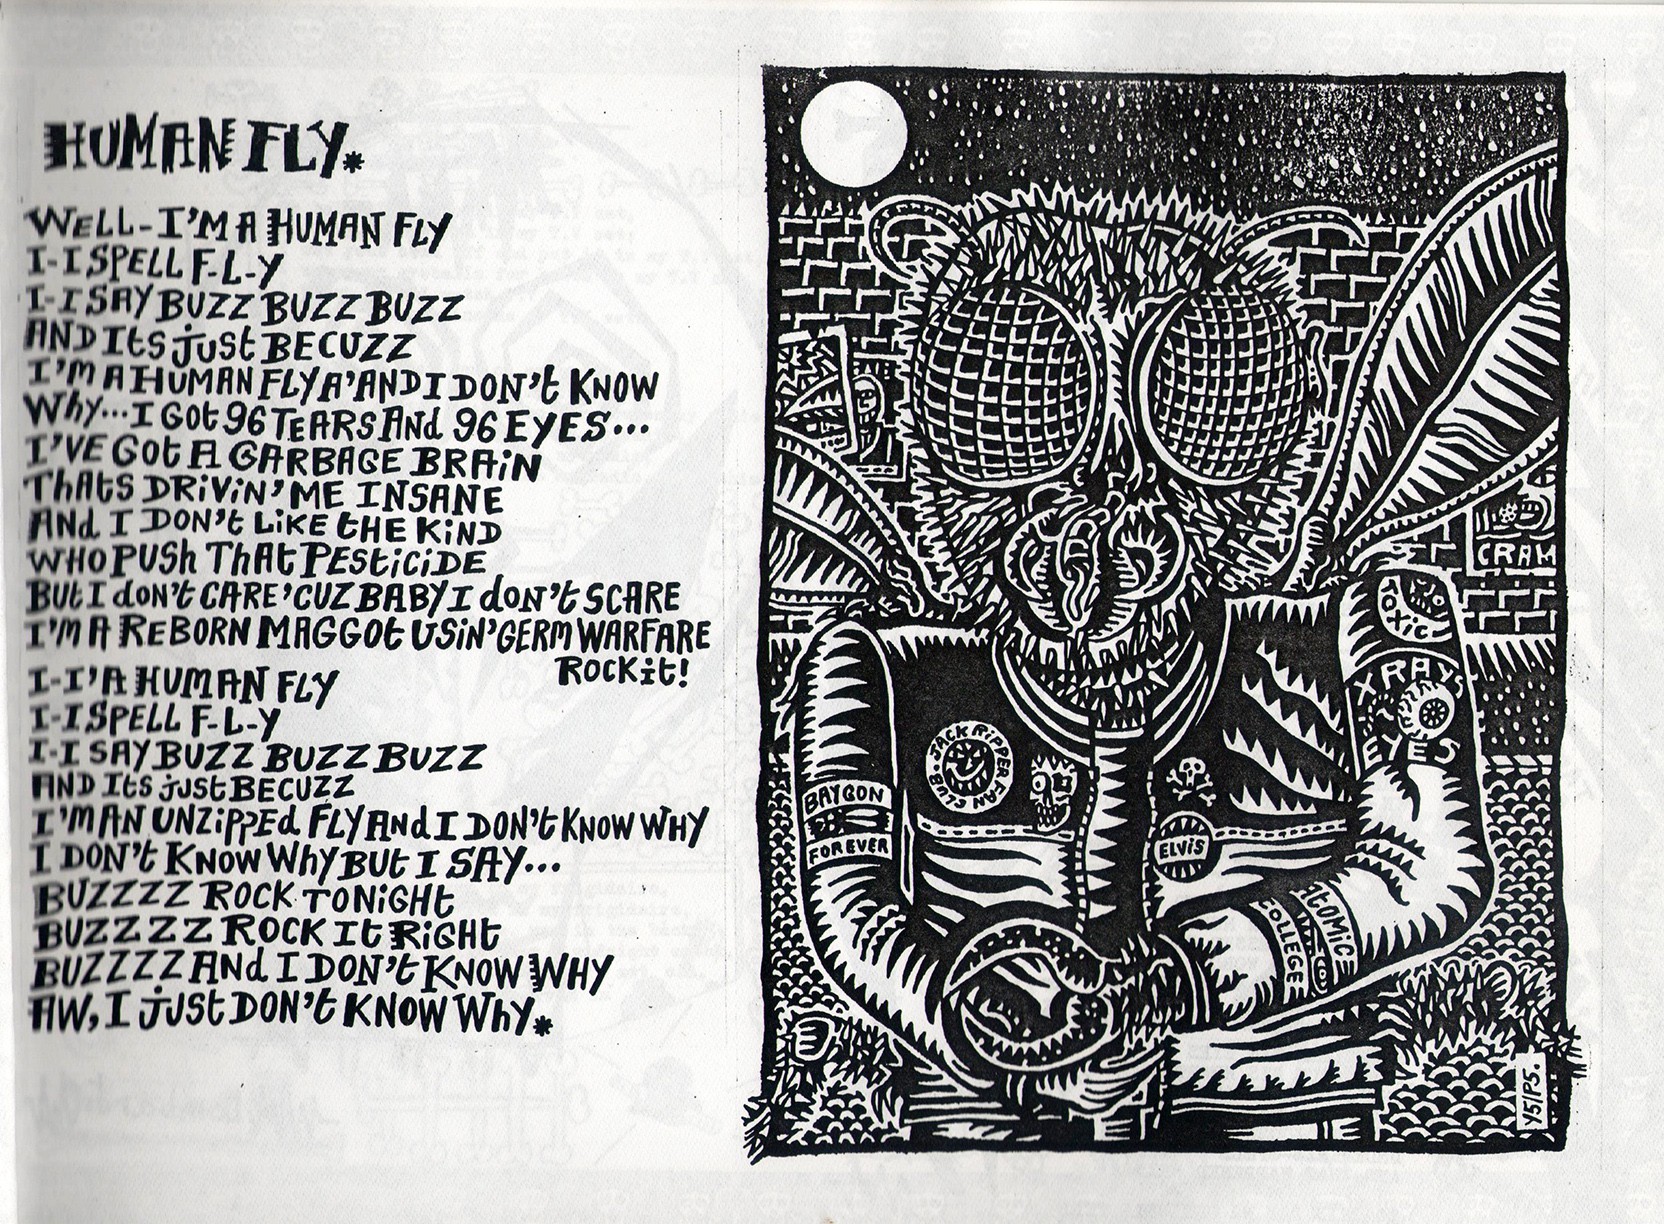 HUMAN FLY.*
WELL-I'M A HUMAN FLY
I-I SPELL F-L-Y
I-I SAY BUZZ BUZZ BUZZ
AND ITS JUST BECUZZ
I'M A HUMAN FLY A'AND I DON'T KNOW
WHY...I GOT 96 TEARS AND 96 EYES...
I'VE GOT A GARBAGE BRAIN
THATS DRIVIN' ME INSANE
AND I DON'T LIKE THE KIND
WHO PUSH THAT PESTICIDE
BUT I DON'T CARE 'CUZ BABY I DON'T SCARE
I'M A REBORN MAGGOT USIN' GERM WARFARE
ROCK IT!
I-I'A HUMAN FLY
I-I SPELL F-L-Y
I-I SAY BUZZ BUZZ BUZZ
AND ITS JUST BECUZZ
I'M AN UNZIPPED FLY AND I DON'T KNOW WHY
I DON'T KNOW WHY BUT I SAY...
BUZZZZ ROCK TONIGHT
BUZZZZZ ROCK IT RIGHT
BUZZZZZ AND I DON'T KNOW WHY
AW, I JUST DON'T KNOW WHY.*
CRAM
TOXIC
X RAY
EYES
JACK RIPPER FAN CLUB
BAYGON
FOREVER
ELVIS
ATOMIC
COLLEGE
Y5/PS.